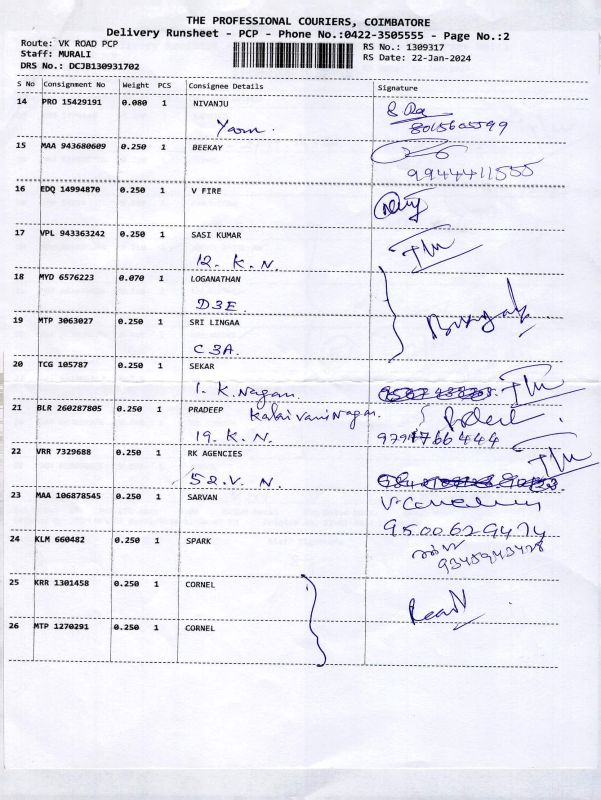 THE PROFESSIONAL COURIERS, COIMBATORE
Delivery Runsheet - PCP - Phone No.:0422-3505555 - Page No.:2
Route: VK ROAD PCP
Staff: MURALI
DRS No.: DCJB130931702
RS No.: 1309317
RS Date: 22-Jan-2024
S No Consignment No Weight PCS Consignee Details Signature
14 PRO 15429191 0.080 1 NIVANJU
8015605599
15 MAA 943680609 0.250 1 BEEKAY
9944411555
16 EDQ 14994870 0.250 1 V FIRE
17 VPL 943363242 0.250 1 SASI KUMAR
12. K. N.
18 MYD 6576223 0.070 1 LOGANATHAN
D3E
19 MTP 3063027 0.250 1 SRI LINGAA
C3A
20 TCG 105787 0.250 1 SEKAR
1. K. Nagan
21 BLR 260287805 0.250 1 PRADEEP
Kalai Vani Nagar
19. K. N. 9791766444
22 VRR 7329688 0.250 1 RK AGENCIES
58. V. N.
23 MAA 106878545 0.250 1 SARVAN
9500629474
24 KLM 660482 0.250 1 SPARK
9345943428
25 KRR 1301458 0.250 1 CORNEL
26 MTP 1270291 0.250 1 CORNEL